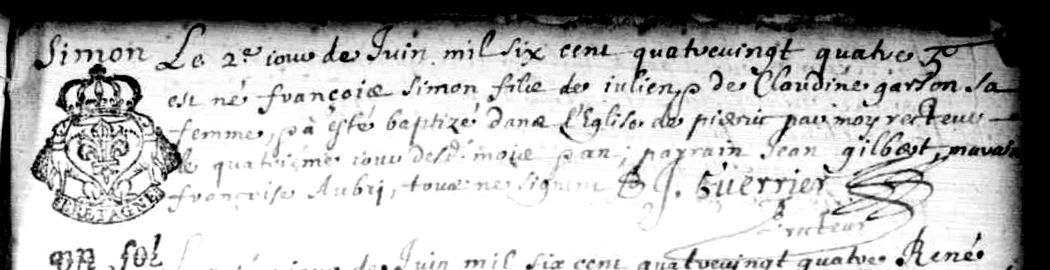 Simon Le 2e jour de Juin mil six cent quatrevingt quatre
est né françois Simon filz de iulien, & de Claudine garson sa
femme, & a esté baptizé dans l'Eglise de par moy recteur
le quatrieme jour desd. mois & an; parrain Jean gilbert, maraine
françoise Aubri, tous ne signent J. Guerrier
Recteur
BRETAGNE
UN SOL
Juin mil six cent quatrevingt quatre René